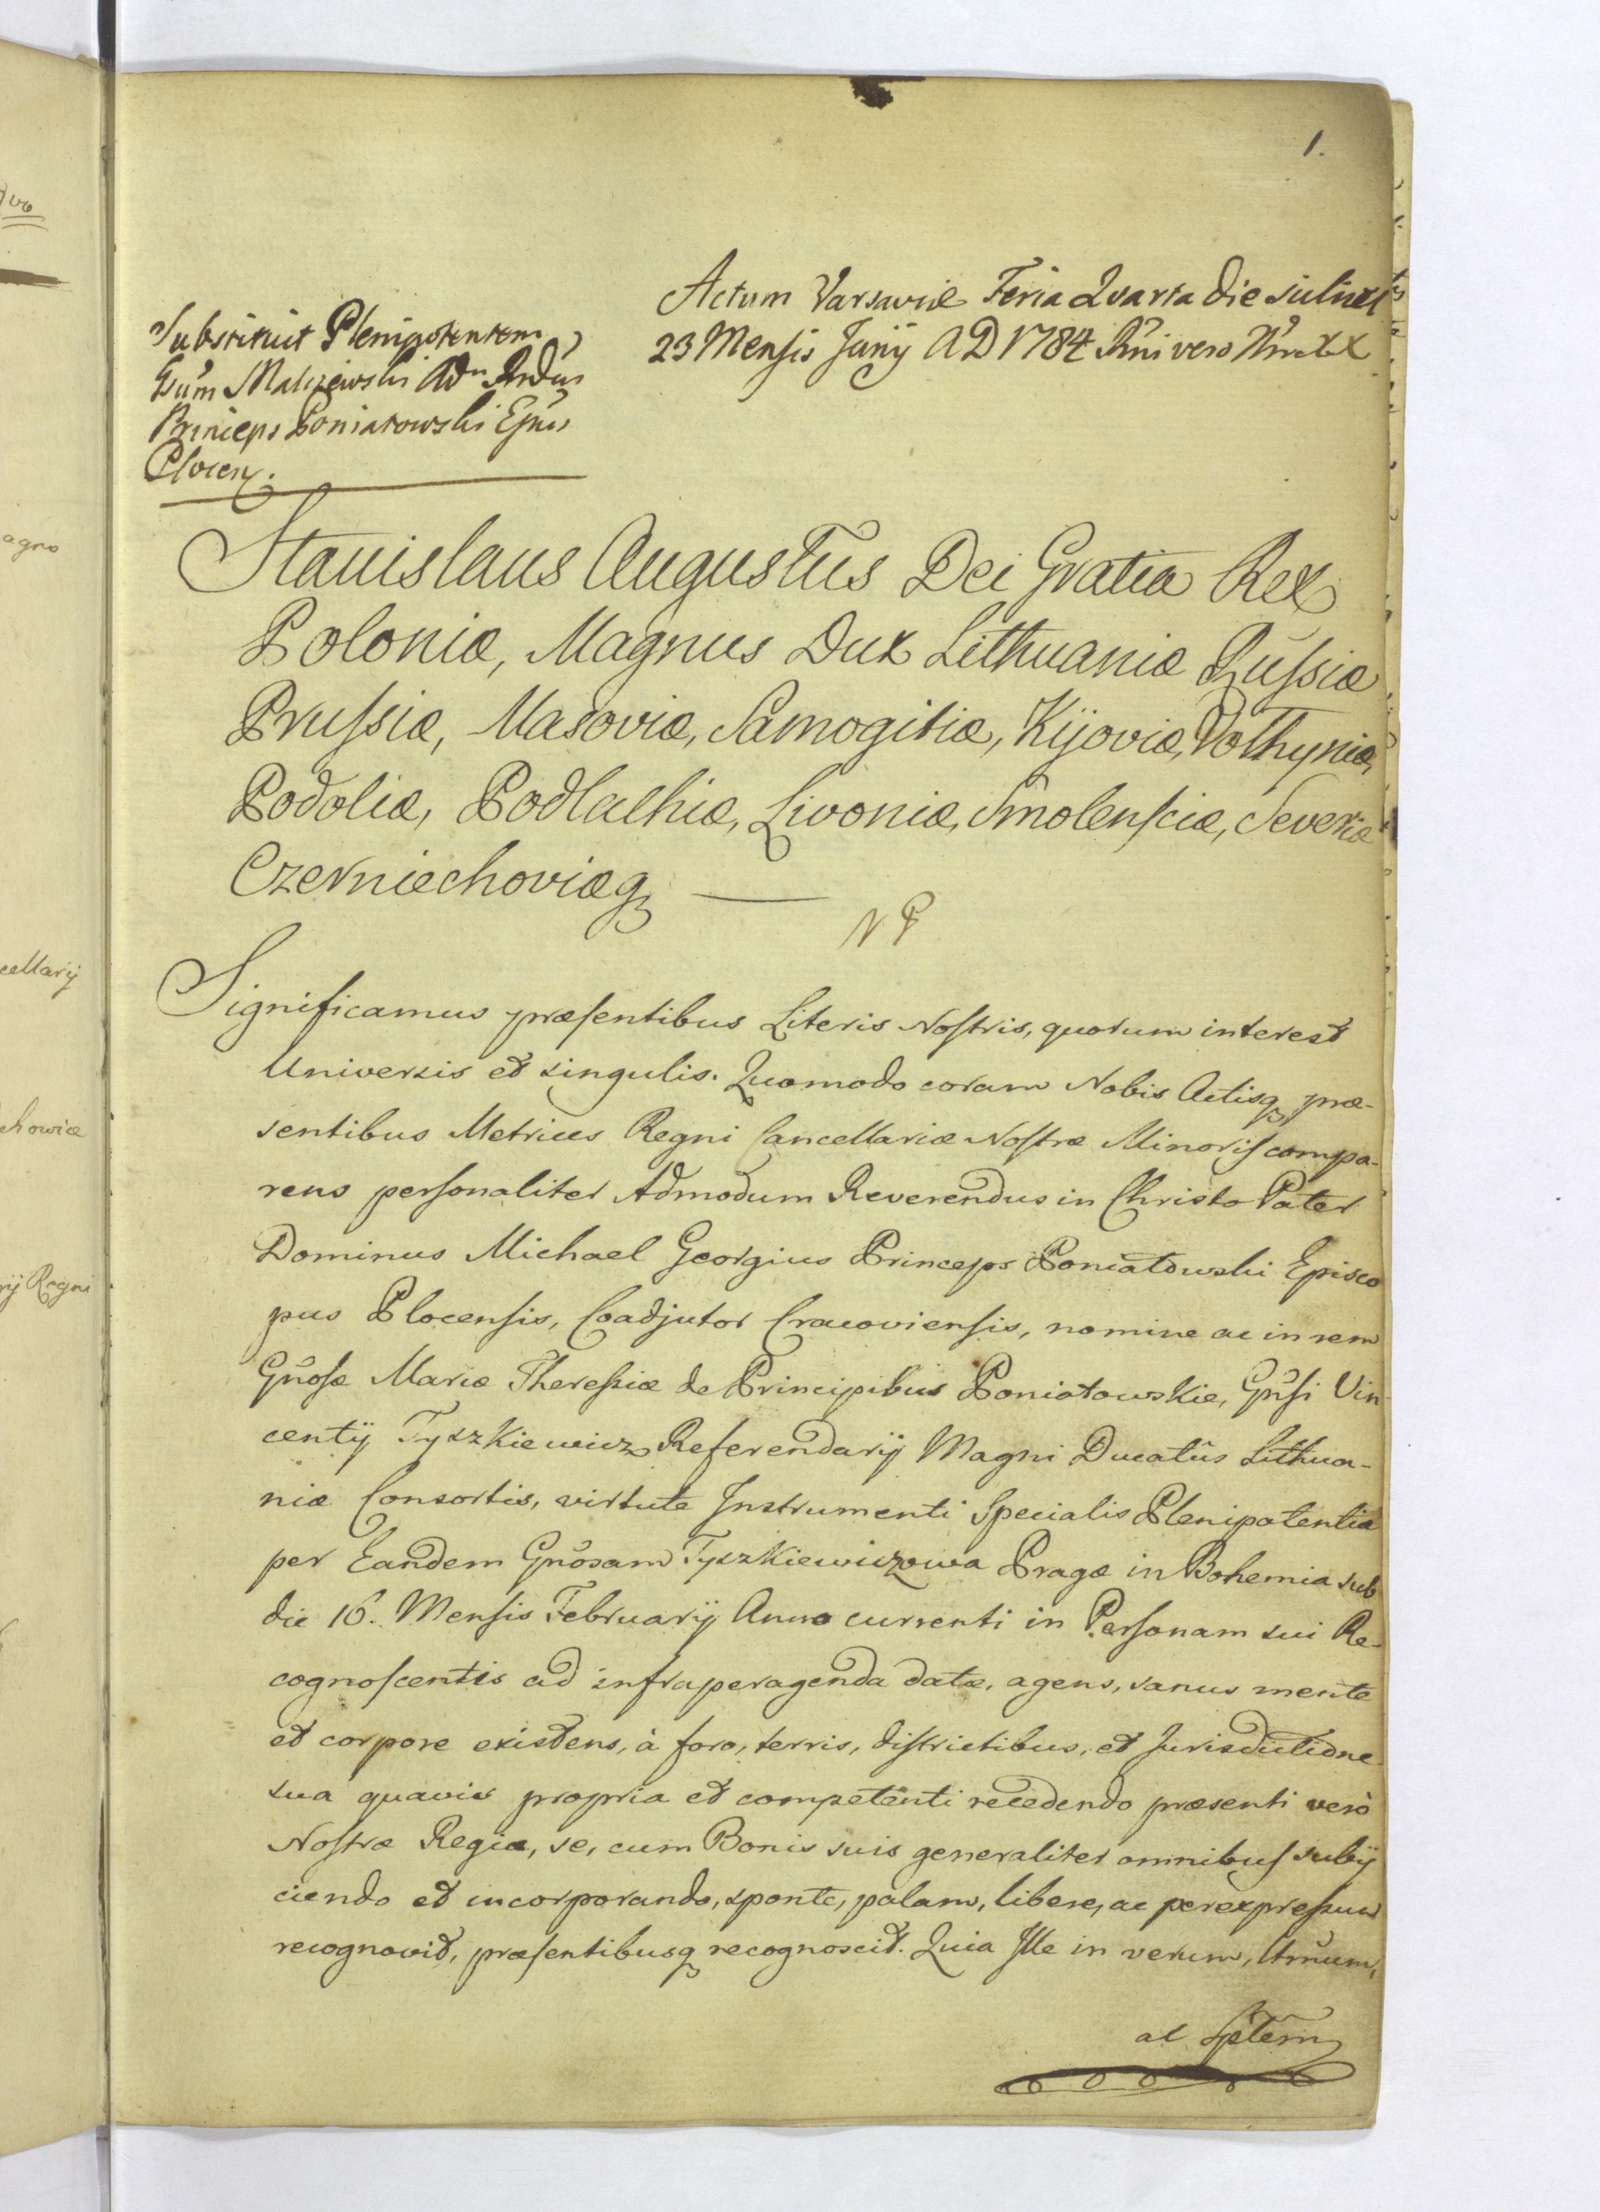 1.
Actum Varsaviæ Feria Quarta die
23 Mensis Junij A D 1784 vero
Substituit Plenipotentem
Gsum Malczewski Adm Rndus
Princeps Poniatowski Epus
Plocen.
Stanislaus Augustus Dei Gratia Rex
Poloniæ, Magnus Dux Lithuaniæ Russiæ
Prussiæ, Masoviæ, Samogitiæ, Kijoviæ, Volhyniæ,
Podoliæ, Podlachiæ, Livoniæ, Smolensciæ, Severiæ
Czerniechoviæq
N P
Significamus præsentibus Literis Nostris, quorum interest
Universis et singulis. Quomodo coram Nobis Actisq præ-
sentibus Metrices Regni Cancellariæ Nostræ Minoris compa-
rens personaliter Admodum Reverendus in Christo Pater
Dominus Michael Georgius Princeps Poniatowski Episco
pus Plocensis, Coadjutor Cracoviensis, nomine ac in rem
Gñosæ Mariæ Theressiæ de Principibus Poniatowskie, Gñsi Vin-
centij Tyszkiewicz Referendarij Magni Ducatûs Lithua-
niæ Consortis, virtute Instrumenti Specialis Plenipotentiæ
per Eandem Gñosam Tyszkiewiczowa Pragæ in Bohemia sub
die 16. Mensis Februarij Anno currenti in Personam sui Re-
cognoscentis ad infraperagenda datæ, agens, sanus mente
et corpore existens, à foro, terris, districtibus, et Jurisdictione
sua quavis propria et competenti recedendo præsenti verò
Nostræ Regiæ, se, cum Bonis suis generaliter omnibus subij
ciendo et incorporando, sponte, palam, libere, ac per expressum
recognovit, præsentibusq recognoscit. Quia Ille in verum,
ac
agno
cellarij
chowiæ
rij Regni